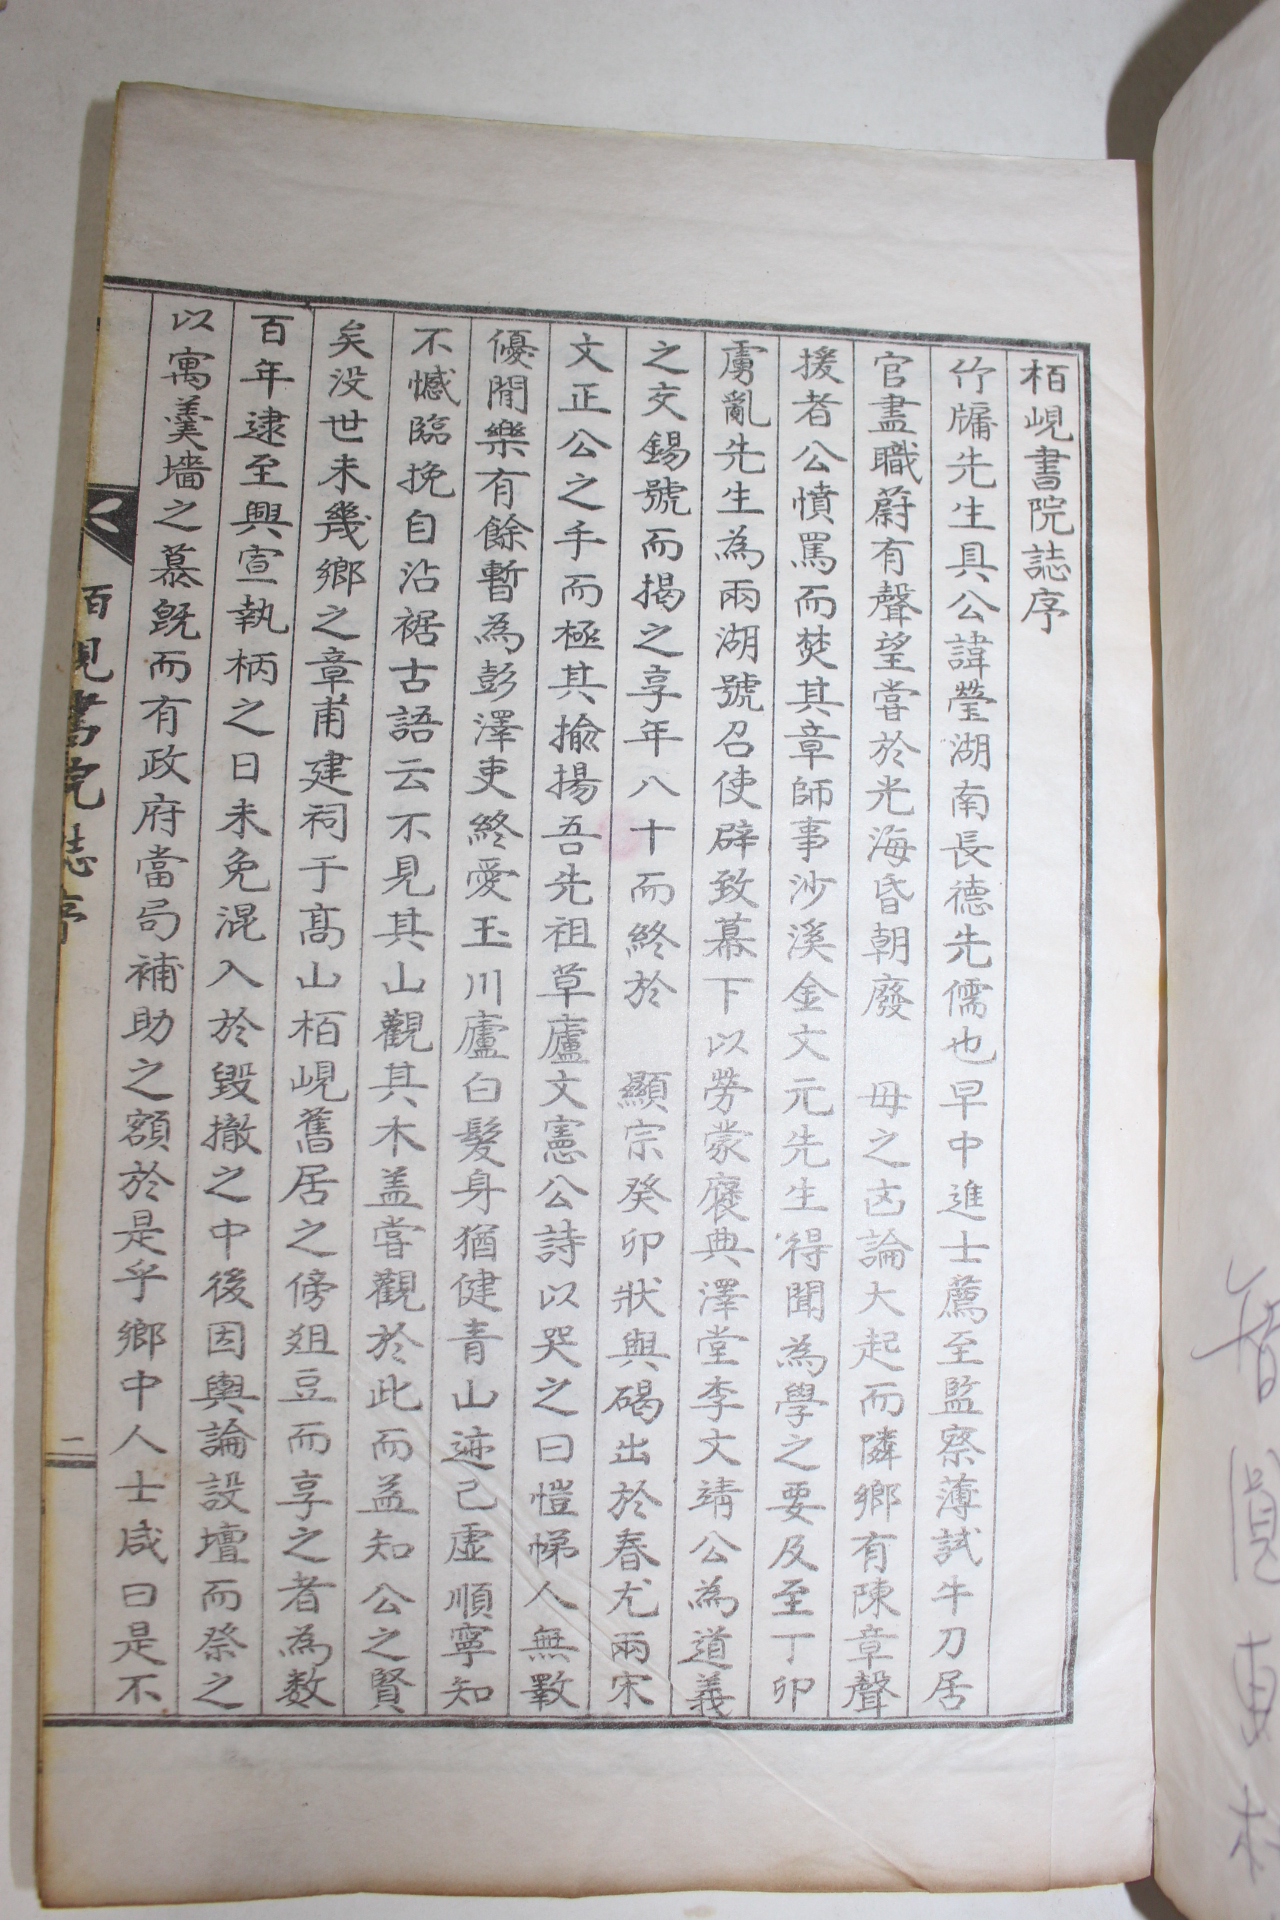 栢峴書院誌序
竹牖先生具公諱瑩湖南長德先儒也早中進士薦至監察薄試牛刀居
官盡職蔚有聲望嘗於光海昏朝廢 毋之凶論大起而隣鄉有陳章聲
援者公憤罵而焚其章師事沙溪金文元先生得聞為學之要及至丁卯
虜亂先生為兩湖號召使辟致幕下以勞蒙褒典澤堂李文靖公為道義
之交錫號而揭之享年八十而終於 顯宗癸卯狀與碣出於春尤兩宋
文正公之手而極其揄揚吾先祖草廬文憲公詩以哭之曰愷悌人無斁
優閒樂有餘暫為彭澤吏終愛玉川廬白髮身猶健青山迹已虛順寧知
不憾臨挽自沾裾古語云不見其山觀其木盖嘗觀於此而益知公之賢
矣没世未幾鄉之章甫建祠于髙山栢峴舊居之傍爼豆而享之者為数
百年逮至興宣執柄之日未免混入於毀撤之中後因輿論設壇而祭之
以寓羹墻之慕旣而有政府當局補助之額於是乎鄉中人士咸曰是不
栢峴書院誌序
一